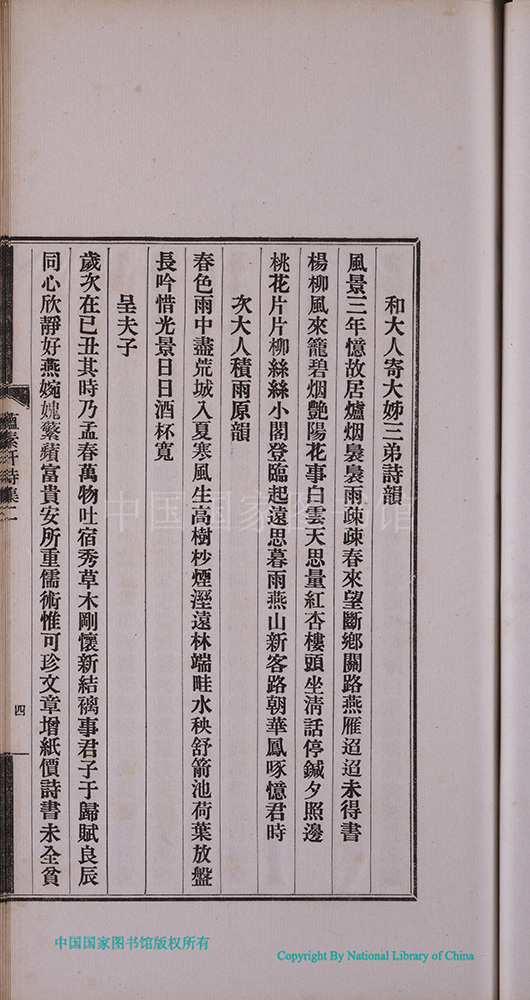 和大人寄大姊三弟詩韻
風景三年憶故居爐烟裊裊雨疎疎春來望斷鄉關路燕雁迢迢未得書
楊柳風來籠碧烟艷陽花事白雲天思量紅杏樓頭坐清話停鍼夕照邊
桃花片片柳絲絲小閣登臨起遠思暮雨燕山新客路朝華鳳啄憶君時
次大人積雨原韻
春色雨中盡荒城入夏寒風生高樹杪煙溼遠林端畦水秧舒箭池荷葉放盤
長吟惜光景日日酒杯寬
呈夫子
歲次在已丑其時乃孟春萬物吐宿秀草木剛懷新結褵事君子于歸賦良辰
同心欣靜好燕婉媿蘩蘋富貴安所重儒術惟可珍文章增紙價詩書未全貧
素軒詩集二
四
中国国家图书馆
中国国家图书馆版权所有
Copyright By National Library of China